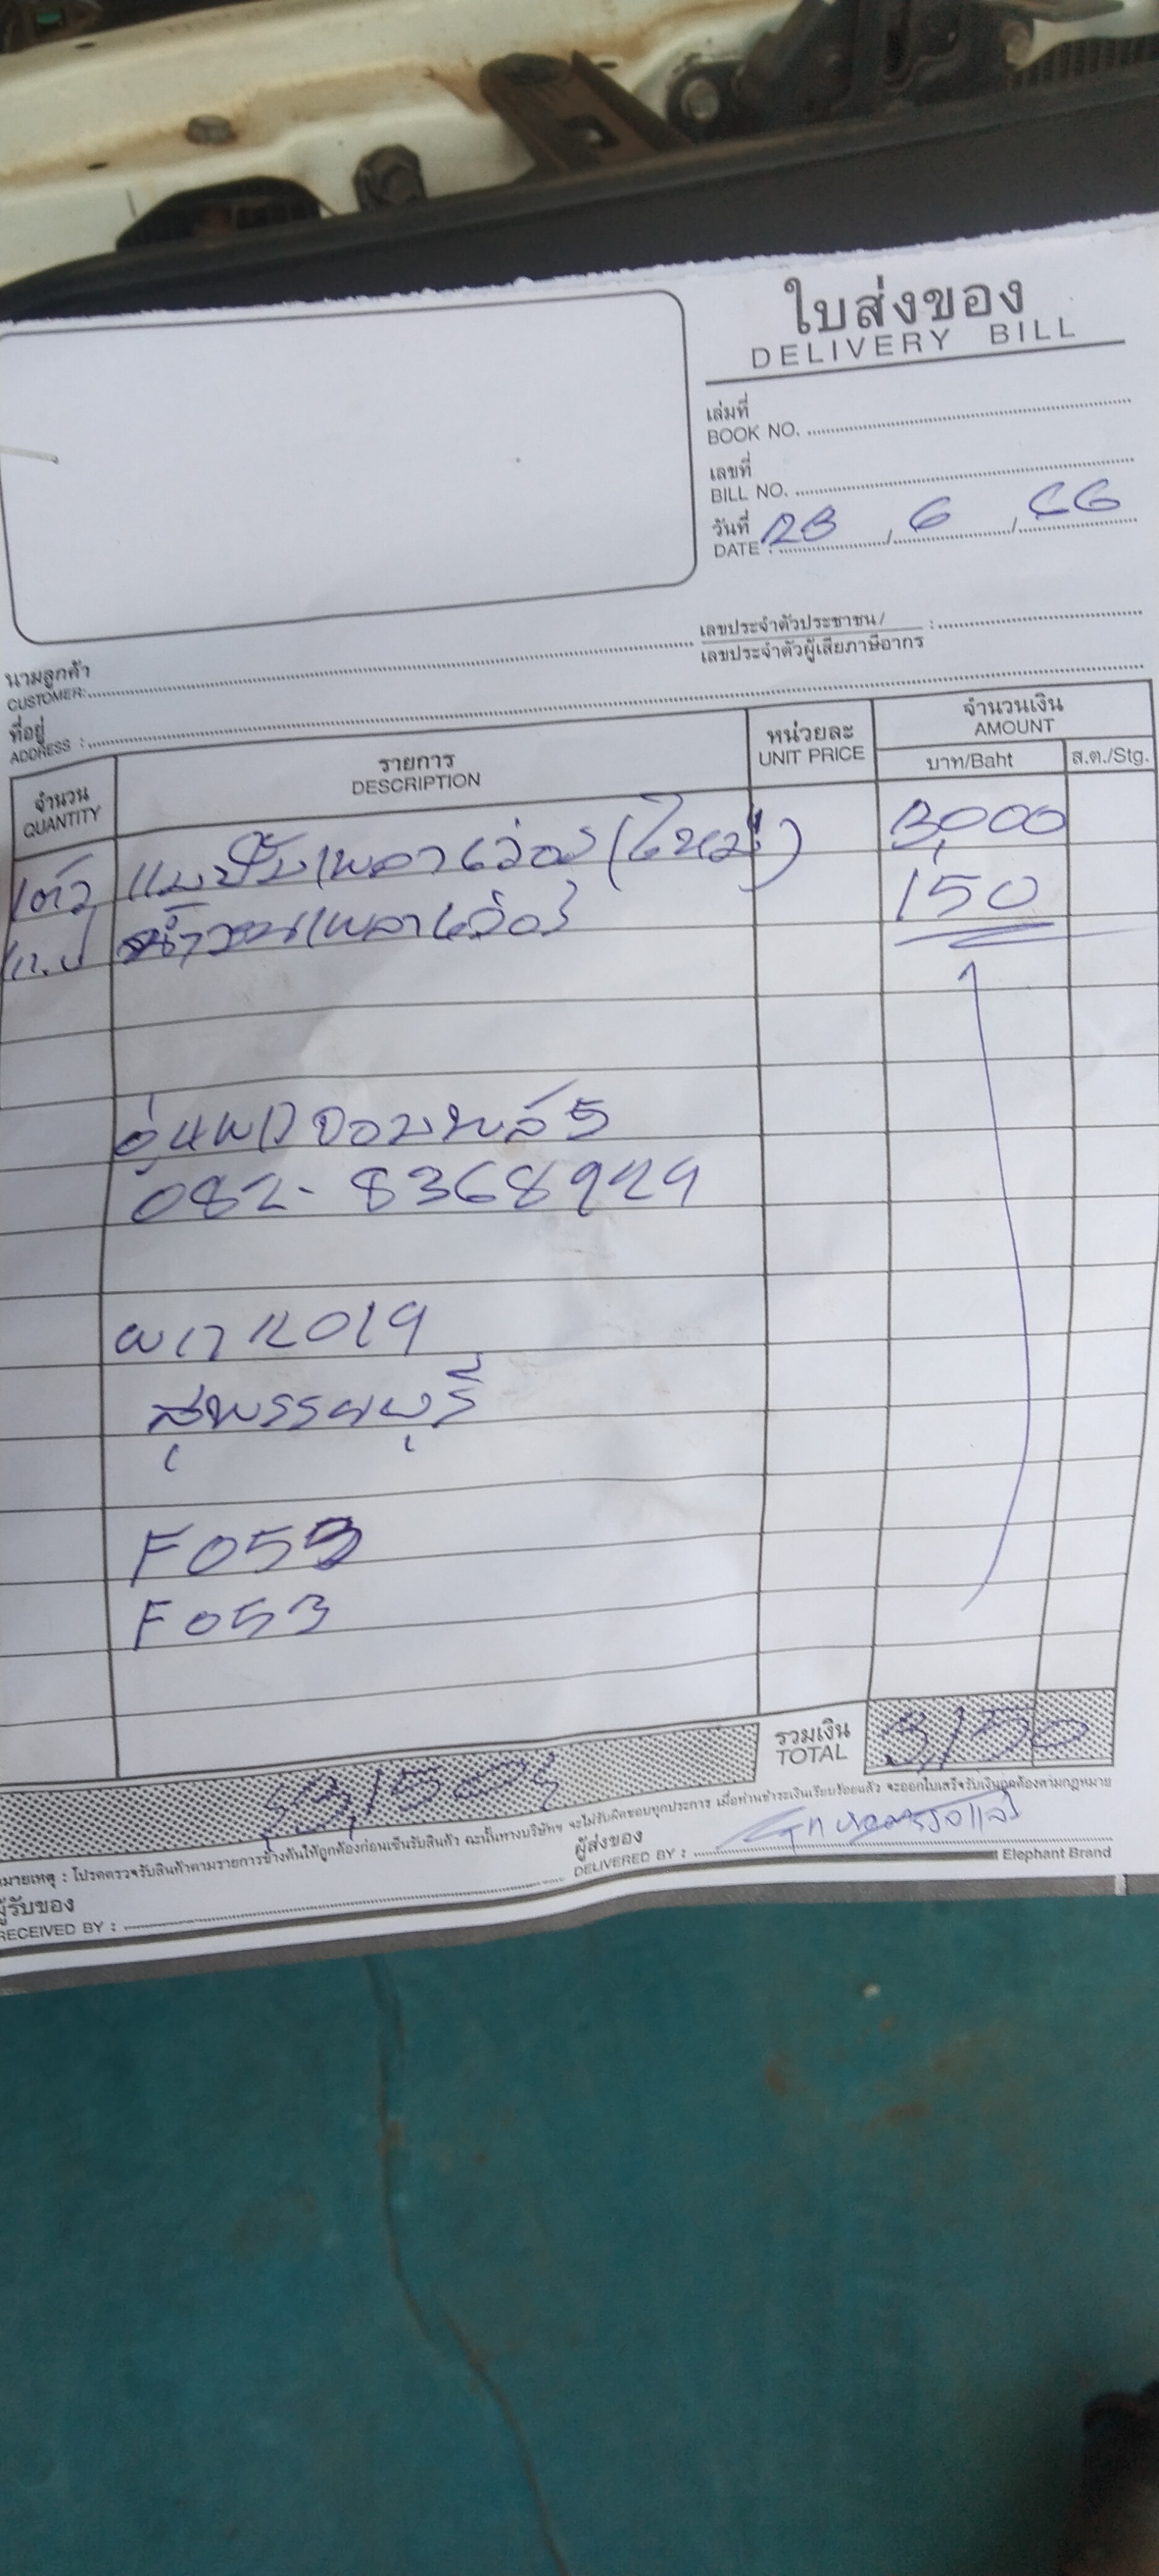 ใบส่งของ
DELIVERY BILL
เล่มที่
BOOK NO.
เลขที่
BILL NO.
วันที่
DATE : 28 / 6 / 66
เลขประจำตัวประชาชน /
เลขประจำตัวผู้เสียภาษีอากร :
นามลูกค้า
CUSTOMER:
ที่อยู่
ADDRESS :
จำนวน
QUANTITY
รายการ
DESCRIPTION
หน่วยละ
UNIT PRICE
จำนวนเงิน
AMOUNT
บาท/Baht ส.ต./Stg.
1 ตัว แม่ปั๊มเพาเวอร์ (ใหม่) 3,000
1 ก.ป น้ำมันเพาเวอร์ 150
082-8368929
2019
สุพรรณบุรี
F053
F053
รวมเงิน
TOTAL
3,150
3,150
หมายเหตุ : โปรดตรวจรับสินค้าตามรายการข้างต้นให้ถูกต้องก่อนเซ็นรับสินค้า ฉะนั้นทางบริษัทฯ จะไม่รับผิดชอบทุกประการ เมื่อท่านชำระเงินเรียบร้อยแล้ว จะออกใบเสร็จรับเงินถูกต้องตามกฎหมาย
ผู้รับของ
RECEIVED BY :
ผู้ส่งของ
DELIVERED BY :
Elephant Brand